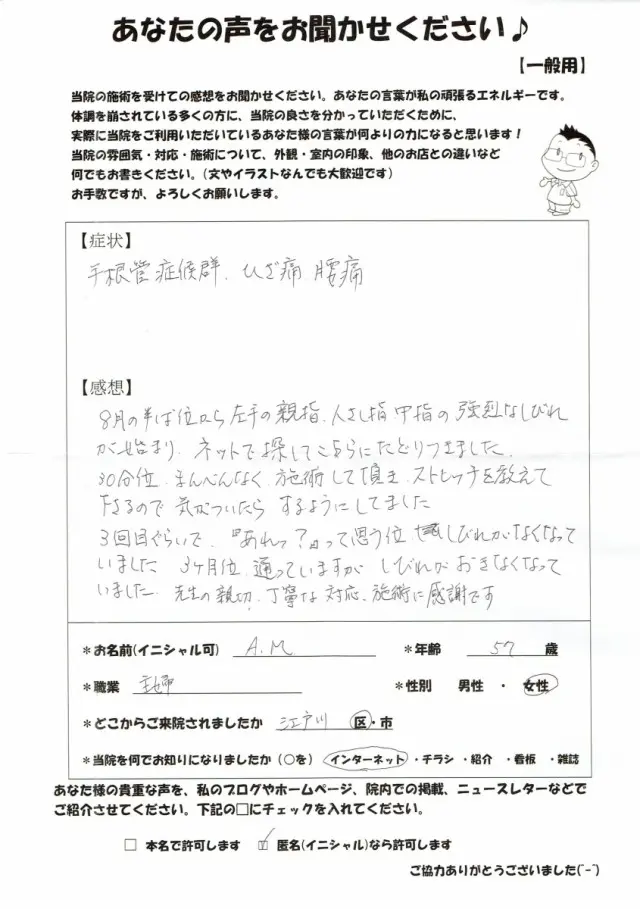 あなたの声をお聞かせください♪
【一般用】
当院の施術を受けての感想をお聞かせください。あなたの言葉が私の頑張るエネルギーです。
体調を崩されている多くの方に、当院の良さを分かっていただくために、
実際に当院をご利用いただいているあなた様の言葉が何よりの力になると思います！
当院の雰囲気・対応・施術について、外観・室内の印象、他のお店との違いなど
何でもお書きください。（文やイラストなんでも大歓迎です）
お手数ですが、よろしくお願いします。
【症状】
手根管症候群、ひざ痛 腰痛
【感想】
8月の半ば位から左手の親指、人さし指 中指の強烈なしびれ
が始まり、ネットで探してこちらにたどりつきました。
30分位、まんべんなく施術して頂き、ストレッチを教えて
下さるので気がついたらするようにしてました
3回目ぐらいで、『あれっ？』って思う位、しびれがなくなって
いました 3ヶ月位、通っていますが しびれがおきなくなって
いました。先生の親切、丁寧な対応、施術に感謝です
＊お名前（イニシャル可） A.M ＊年齢 57 歳
＊職業 主婦 ＊性別 男性 ・ 女性
＊どこからご来院されましたか 江戸川 区・市
＊当院を何でお知りになりましたか（○を） インターネット ・チラシ ・紹介 ・看板 ・雑誌
あなた様の貴重な声を、私のブログやホームページ、院内での掲載、ニュースレターなどで
ご紹介させてください。下記の□にチェックを入れてください。
□ 本名で許可します ☑ 匿名（イニシャル）なら許可します
ご協力ありがとうございました(^-^)